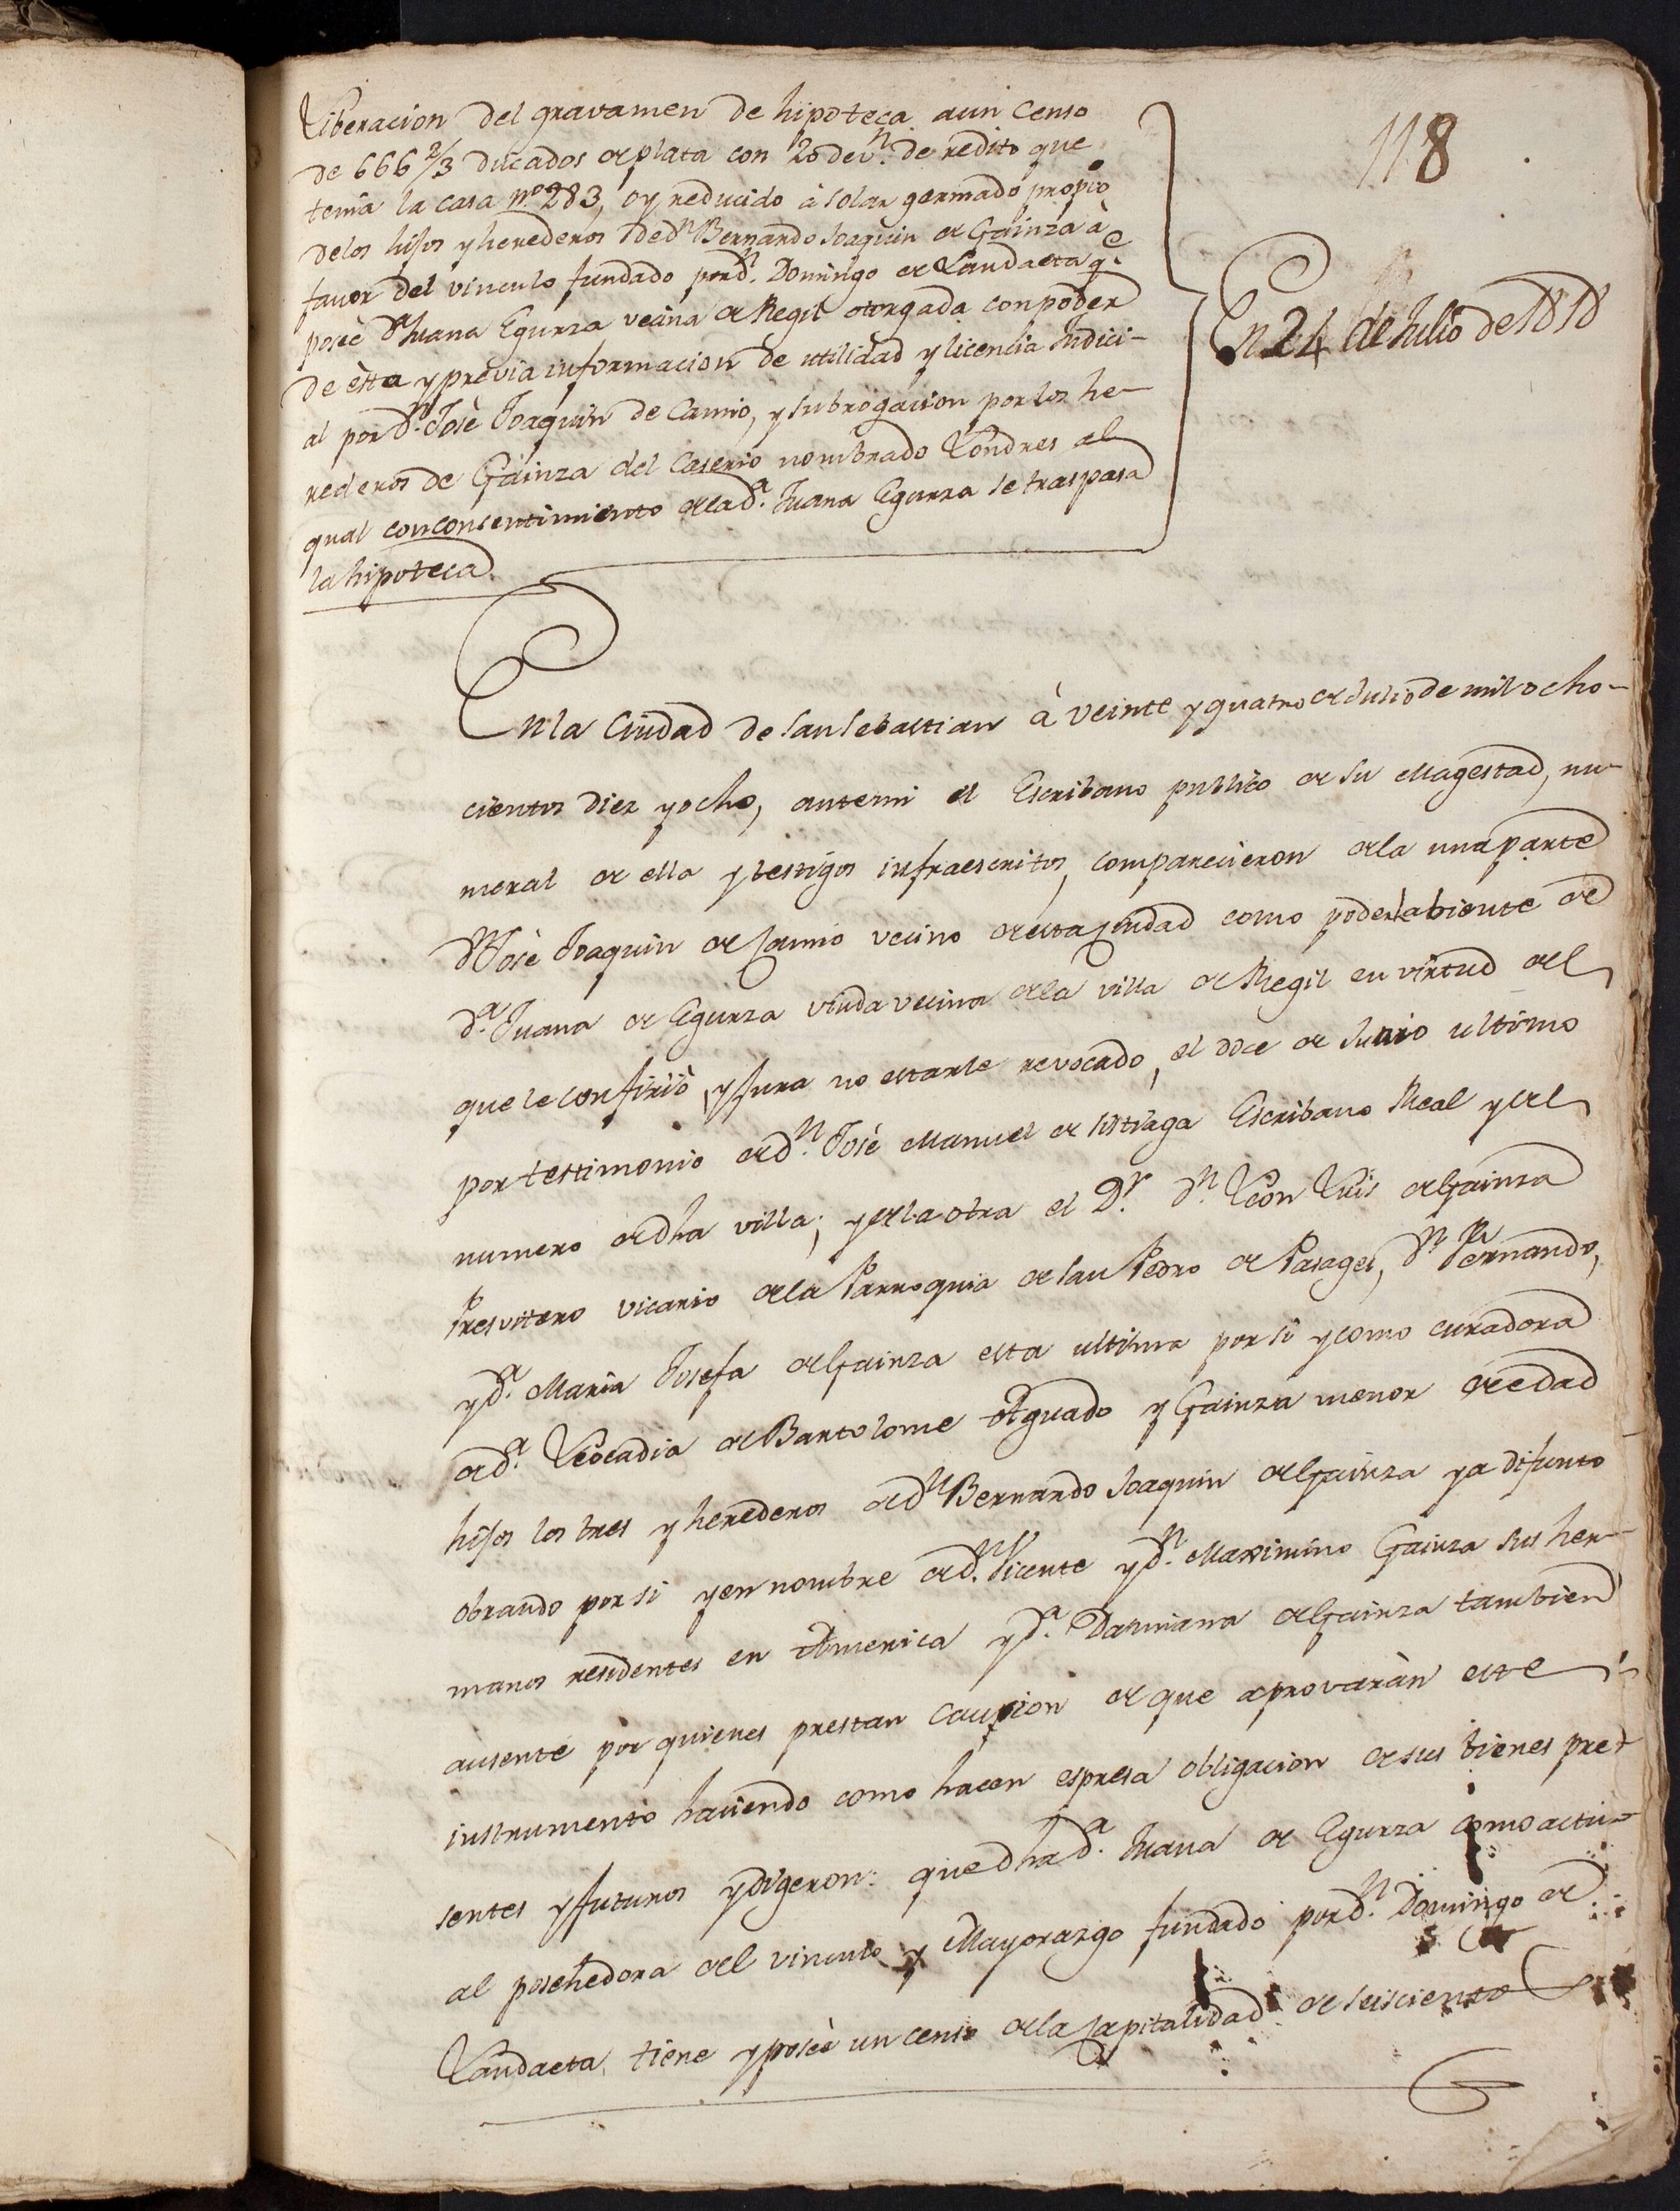 Liberacion del gravamen de hipoteca aun Censo
de 666 2/3 ducados de plata con 20 de vn. de redito que
tenia la casa nº 283, oy reducido à solar yermado propio
delos hijos y herederos de dn. Bernardo Joaquin de Gainza à
favor del vinculo fundado por dn. Domingo de Landaeta q.e
poseè da. Juana Egurza vecina de Regil otorgada con poder
de èsta y previa informacion de utilidad y licencia Judici-
al por dn. Josè Joaquin de Camio, y subrogacion por los he-
rederos de Gainza del Caserio nombrado Londres al
qual con consentimiento de la da. Juana Egurza se traspasa
la hipoteca.
118
En 24 de Julio de 1818
En la Ciudad de San Sebastian à veinte y quatro de Julio de mil ocho-
cientos diez y ocho, antemi el Escribano publico de su Magestad, nu-
meral de ella y testigos infraescritos, comparecieron dela una parte
dn. Josè Joaquin de Camio vecino de esta ciudad como poderhabiente de
da. Juana de Egurza viuda vecina dela villa de Regil en virtud del
que le confiriò, y jura no estarle revocado, el doce de Junio ultimo
por testimonio de dn. Josè Manuel de Astiaga Escribano Real y del
numero de dha villa; y dela otra el Dr. dn. Leon Luis de Gainza
Presvitero vicario dela Parroquia de San Pedro de Pasages, dn. Fernando,
y da. Maria Josefa de Gainza esta ultima por si y como curadora
de da. Leocadia de Bartolome Aguado y Gainza menor de edad
hijos los tres y herederos de dn. Bernardo Joaquin de Gainza ya difunto
obrando por si y en nombre de dn. Vicente y dn. Maximino Gainza sus her-
manos residentes en America y da. Damiana de Gainza tambien
ausente por quienes prestan caucion de que aprovaràn este
instrumento haciendo como hacen espresa obligacion de sus bienes pre-
sentes y futuros y digeron: que dha da. Juana de Egurza como actu-
al posehedora del vinculo y Mayorazgo fundado por dn. Domingo de
Landaeta, tiene y poseè un censo dela capitalidad de seiscientos